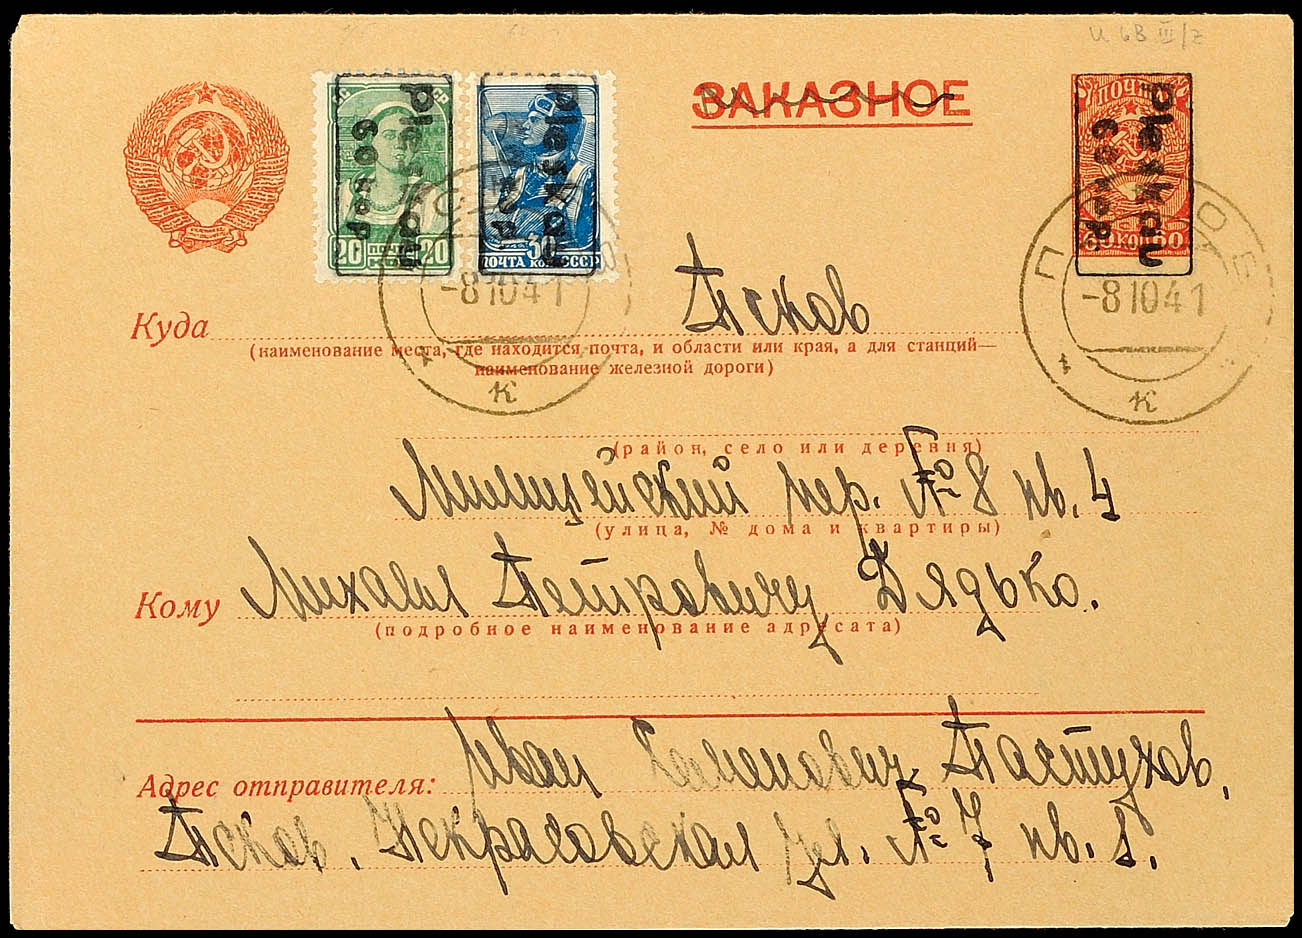 U 6B III/Z
ЗАКАЗНОЕ
Pleskau
60 кор
20 ПОЧТА 20
Pleskau
30
ПОЧТА КОП. СССР
ПОЧТА
Pleskau
60 кор
60 КОП 60
ПСКОВ
-8 10 41
к
ПСКОВ
-8 10 41
к
Куда Псков
(наименование места, где находится почта, и области или края, а для станций—
наименование железной дороги)
(район, село или деревня)
Милицейский пер. № 8 кв. 4
(улица, № дома и квартиры)
Кому Михаил Петрович Дядько.
(подробное наименование адресата)
Адрес отправителя: Иван Семенович Пастухов,
Псков. Некрасовская ул. № 7 кв. 5.